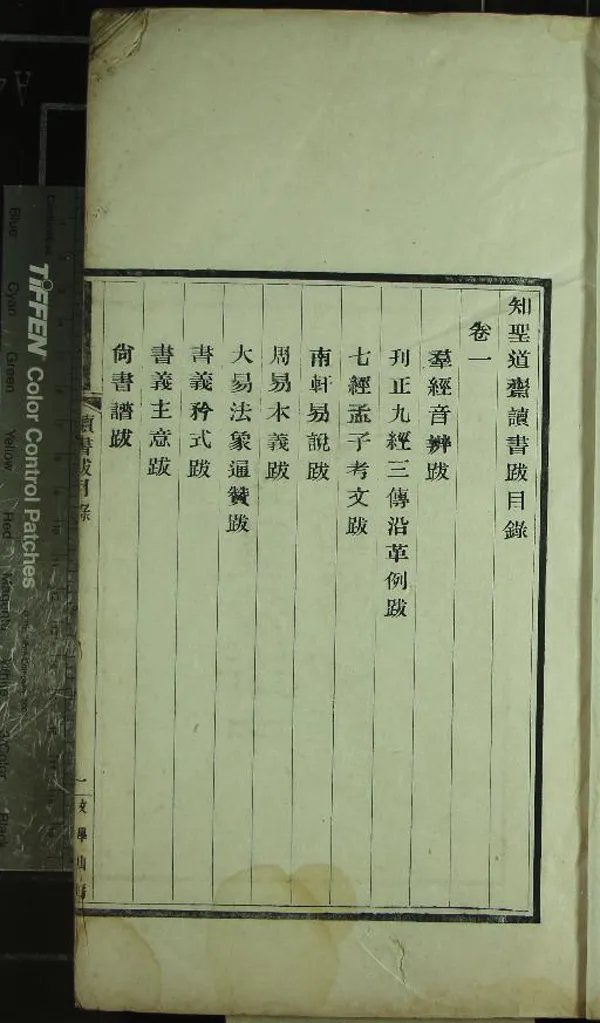 知聖道齋讀書跋目錄
卷一
羣經音辨跋
刊正九經三傳沿革例跋
七經孟子考文跋
南軒易說跋
周易本義跋
大易法象通贊跋
書義矜式跋
書義主意跋
尙書譜跋
讀書跋目錄
一
TIFFEN Color Control Patches
Blue
Cyan
Green
Yellow
Red
Magenta
White
3/Color
Black